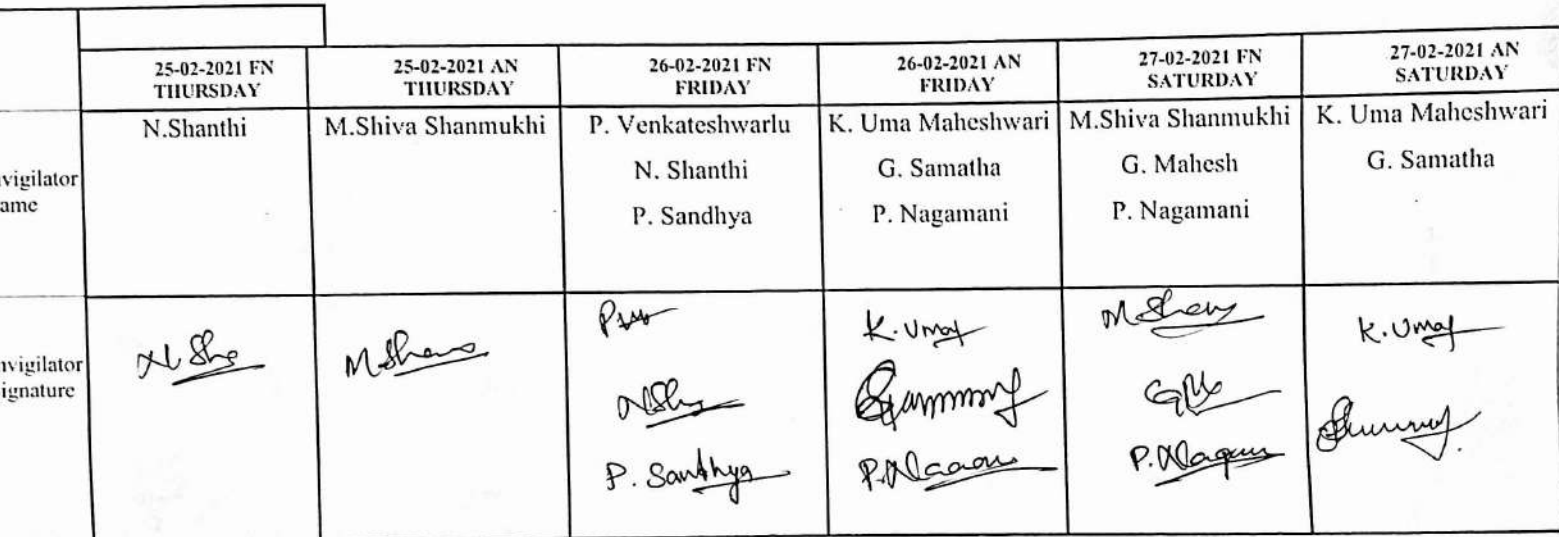 25-02-2021 FN THURSDAY
25-02-2021 AN THURSDAY
26-02-2021 FN FRIDAY
26-02-2021 AN FRIDAY
27-02-2021 FN SATURDAY
27-02-2021 AN SATURDAY
vigilator
ame
N.Shanthi
M.Shiva Shanmukhi
P. Venkateshwarlu
N. Shanthi
P. Sandhya
K. Uma Maheshwari
G. Samatha
P. Nagamani
M.Shiva Shanmukhi
G. Mahesh
P. Nagamani
K. Uma Maheshwari
G. Samatha
nvigilator
ignature
P. Sandhya
K. Uma
K. Uma